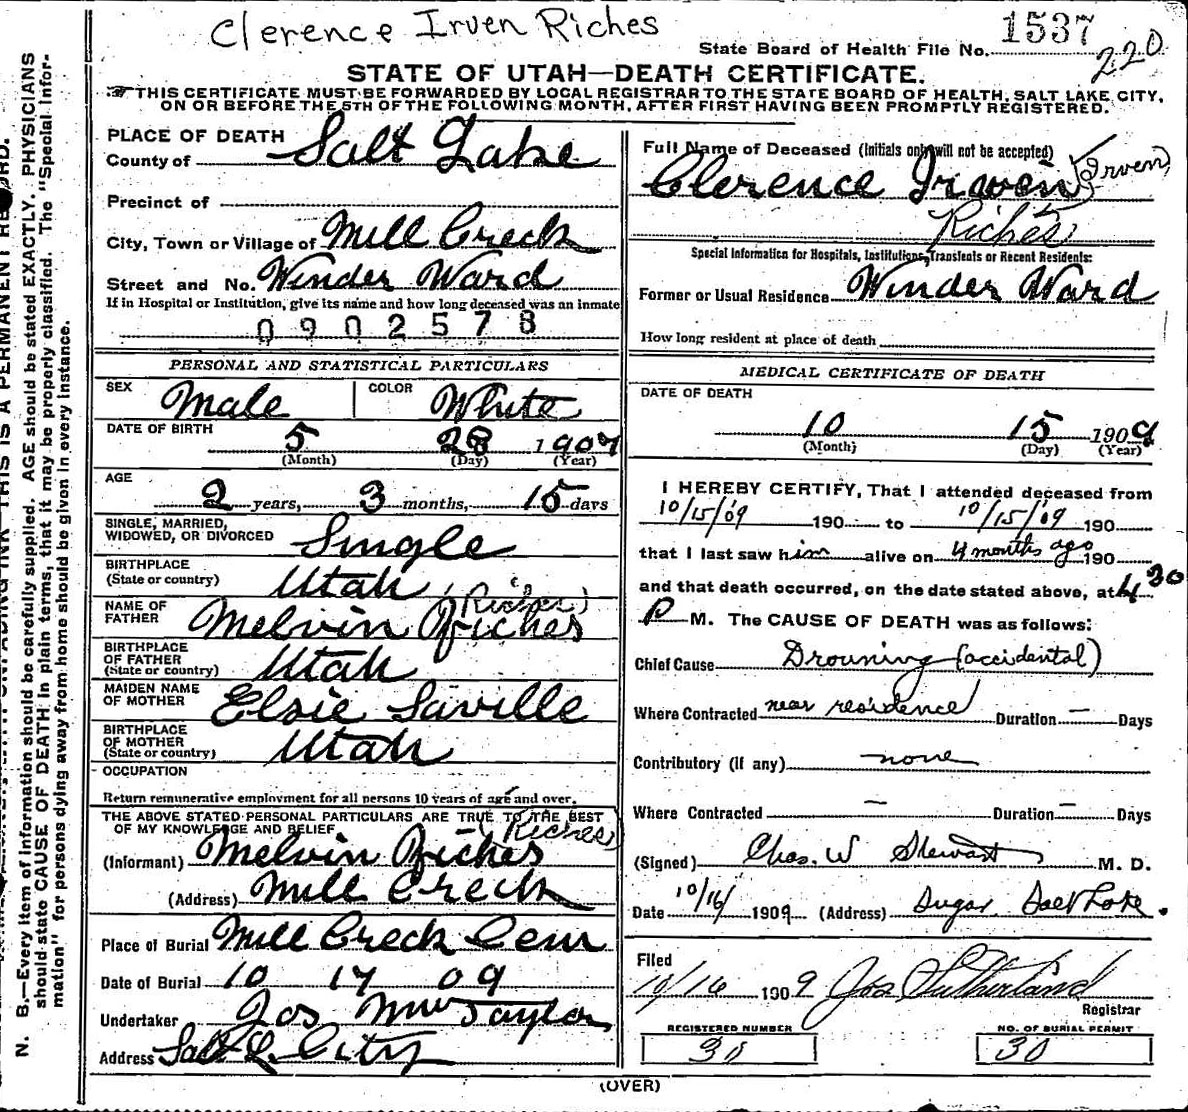 Clerence Irven Riches
State Board of Health File No. 1537
220
STATE OF UTAH—DEATH CERTIFICATE.
THIS CERTIFICATE MUST BE FORWARDED BY LOCAL REGISTRAR TO THE STATE BOARD OF HEALTH, SALT LAKE CITY,
ON OR BEFORE THE 5TH OF THE FOLLOWING MONTH, AFTER FIRST HAVING BEEN PROMPTLY REGISTERED.
PLACE OF DEATH
County of Salt Lake
Precinct of
City, Town or Village of Mill Creek
Street and No. Winder Ward
If in Hospital or Institution, give its name and how long deceased was an inmate
0902578
PERSONAL AND STATISTICAL PARTICULARS
SEX Male COLOR White
DATE OF BIRTH
5 28 1907
(Month) (Day) (Year)
AGE
2 years, 3 months, 15 days
SINGLE, MARRIED,
WIDOWED, OR DIVORCED Single
BIRTHPLACE
(State or country) Utah
(Riches)
NAME OF
FATHER Melvin Riches
BIRTHPLACE
OF FATHER
(State or country) Utah
MAIDEN NAME
OF MOTHER Elsie Saville
BIRTHPLACE
OF MOTHER
(State or country) Utah
OCCUPATION
Return remunerative employment for all persons 10 years of age and over.
THE ABOVE STATED PERSONAL PARTICULARS ARE TRUE TO THE BEST
OF MY KNOWLEDGE AND BELIEF (Riches)
(Informant) Melvin Riches
(Address) Mill Creek
Place of Burial Mill Creek Cem
Date of Burial 10 17 09
Undertaker Jos Wm Taylor
Address Salt L. City
Full Name of Deceased (Initials only will not be accepted)
Clerence Irwen (Irven)
Riches
Special Information for Hospitals, Institutions, Transients or Recent Residents:
Former or Usual Residence Winder Ward
How long resident at place of death
MEDICAL CERTIFICATE OF DEATH
DATE OF DEATH
10 15 1909
(Month) (Day) (Year)
I HEREBY CERTIFY, That I attended deceased from
10/15/09 190 to 10/15/09 190
that I last saw him alive on 4 months ago 190
and that death occurred, on the date stated above, at 4 30
P M. The CAUSE OF DEATH was as follows:
Chief Cause Drouning (accidental)
Where Contracted near residence Duration — Days
Contributory (If any) none
Where Contracted — Duration — Days
(Signed) Chas. W Stewart M. D.
Date 10/16 1909 (Address) Sugar Salt Lake.
Filed
10/16 1909 Jos Sutherland
Registrar
REGISTERED NUMBER
30
NO. OF BURIAL PERMIT
30
(OVER)
N. B.—Every item of information should be carefully supplied. AGE should be stated EXACTLY. PHYSICIANS
should state CAUSE OF DEATH in plain terms, that it may be properly classified. The "Special Infor-
mation" for persons dying away from home should be given in every instance.